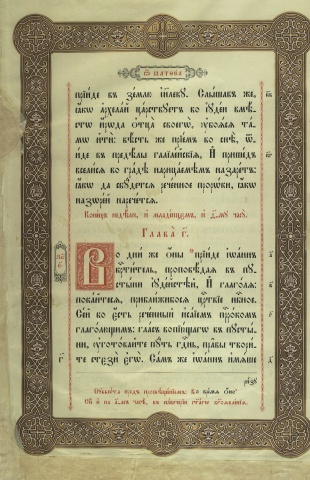 Ѿ МАТѲЕА
прїиде въ землю їиⷭ҇леву. Слышавъ же,
ꙗкѡ архелай царствуетъ во їудеи вмѣ-
стѡ ирѡда ѻтца своегѡ, убоѧсѧ та-
мѡ ити: вѣсть же прїемъ во снѣ, ѿ-
иде въ предѣлы галїлейскїѧ, И пришедъ
вселисѧ во градѣ нарицаемѣмъ назаретъ:
ꙗкѡ да сбудетсѧ реченное прорѡки, ꙗкѡ
назѡрей наречетсѧ.
Конецъ недѣли, и
ГЛАВА Г҃.
Во дни же ѻны прїиде їѡаннъ
крⷭ҇титель, проповѣдаѧ въ пу-
стыни їудейстѣй, И глаголѧ:
покайтесѧ, приближибосѧ црⷭ҇твїе нбⷭ҇ное.
Сей бо есть реченный їсаїемъ прⷪ҇рокомъ
глаголющимъ: гласъ вопїющагѡ въ пусты-
ни, уготовайте путь гдⷭ҇ень, правы твори-
те стези егѡ. Самъ же їѡаннъ имѧше